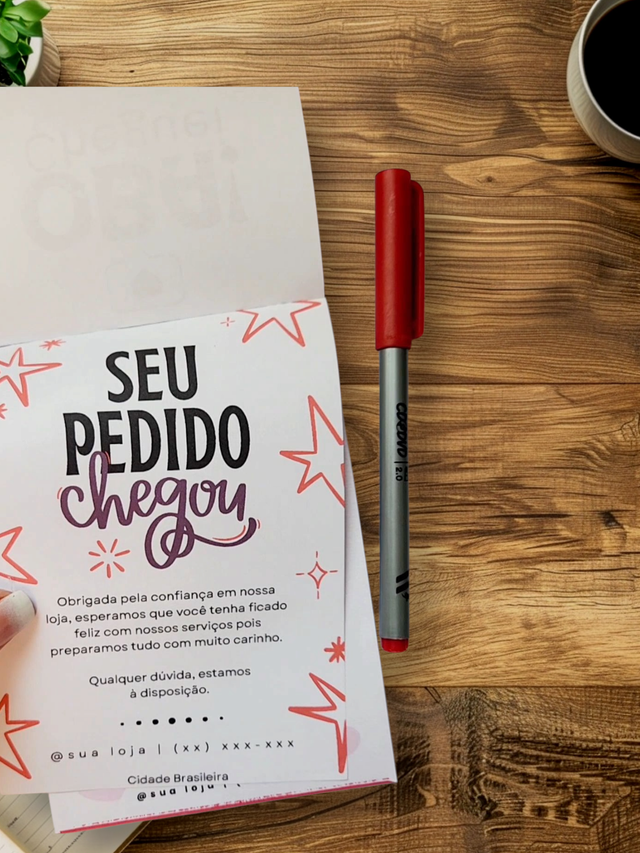 SEU
PEDIDO
chegou
Obrigada pela confiança em nossa
loja, esperamos que você tenha ficado
feliz com nossos serviços pois
preparamos tudo com muito carinho.
Qualquer dúvida, estamos
à disposição.
@sua loja | (xx) xxx-xxx
Cidade Brasileira
@sua loja | (
2.0